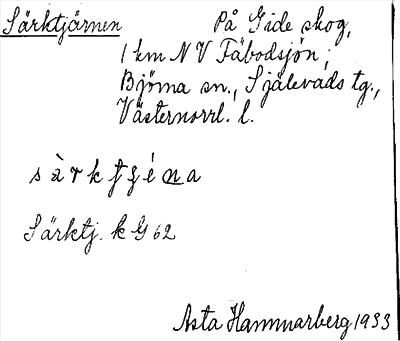 Särktjärnen På Gide skog,
1 km N V Fäbodsjön;
Björna sn., Själevads tg.,
Västernorrl. l.
Särktj. k G 62
Asta Hammarberg 1933